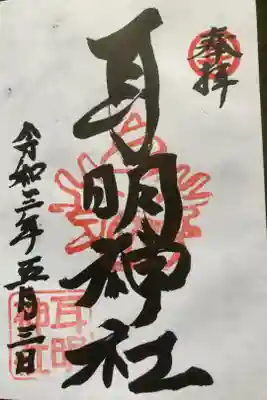 奉拝
耳明神社
令和三年五月三日
耳明
神社